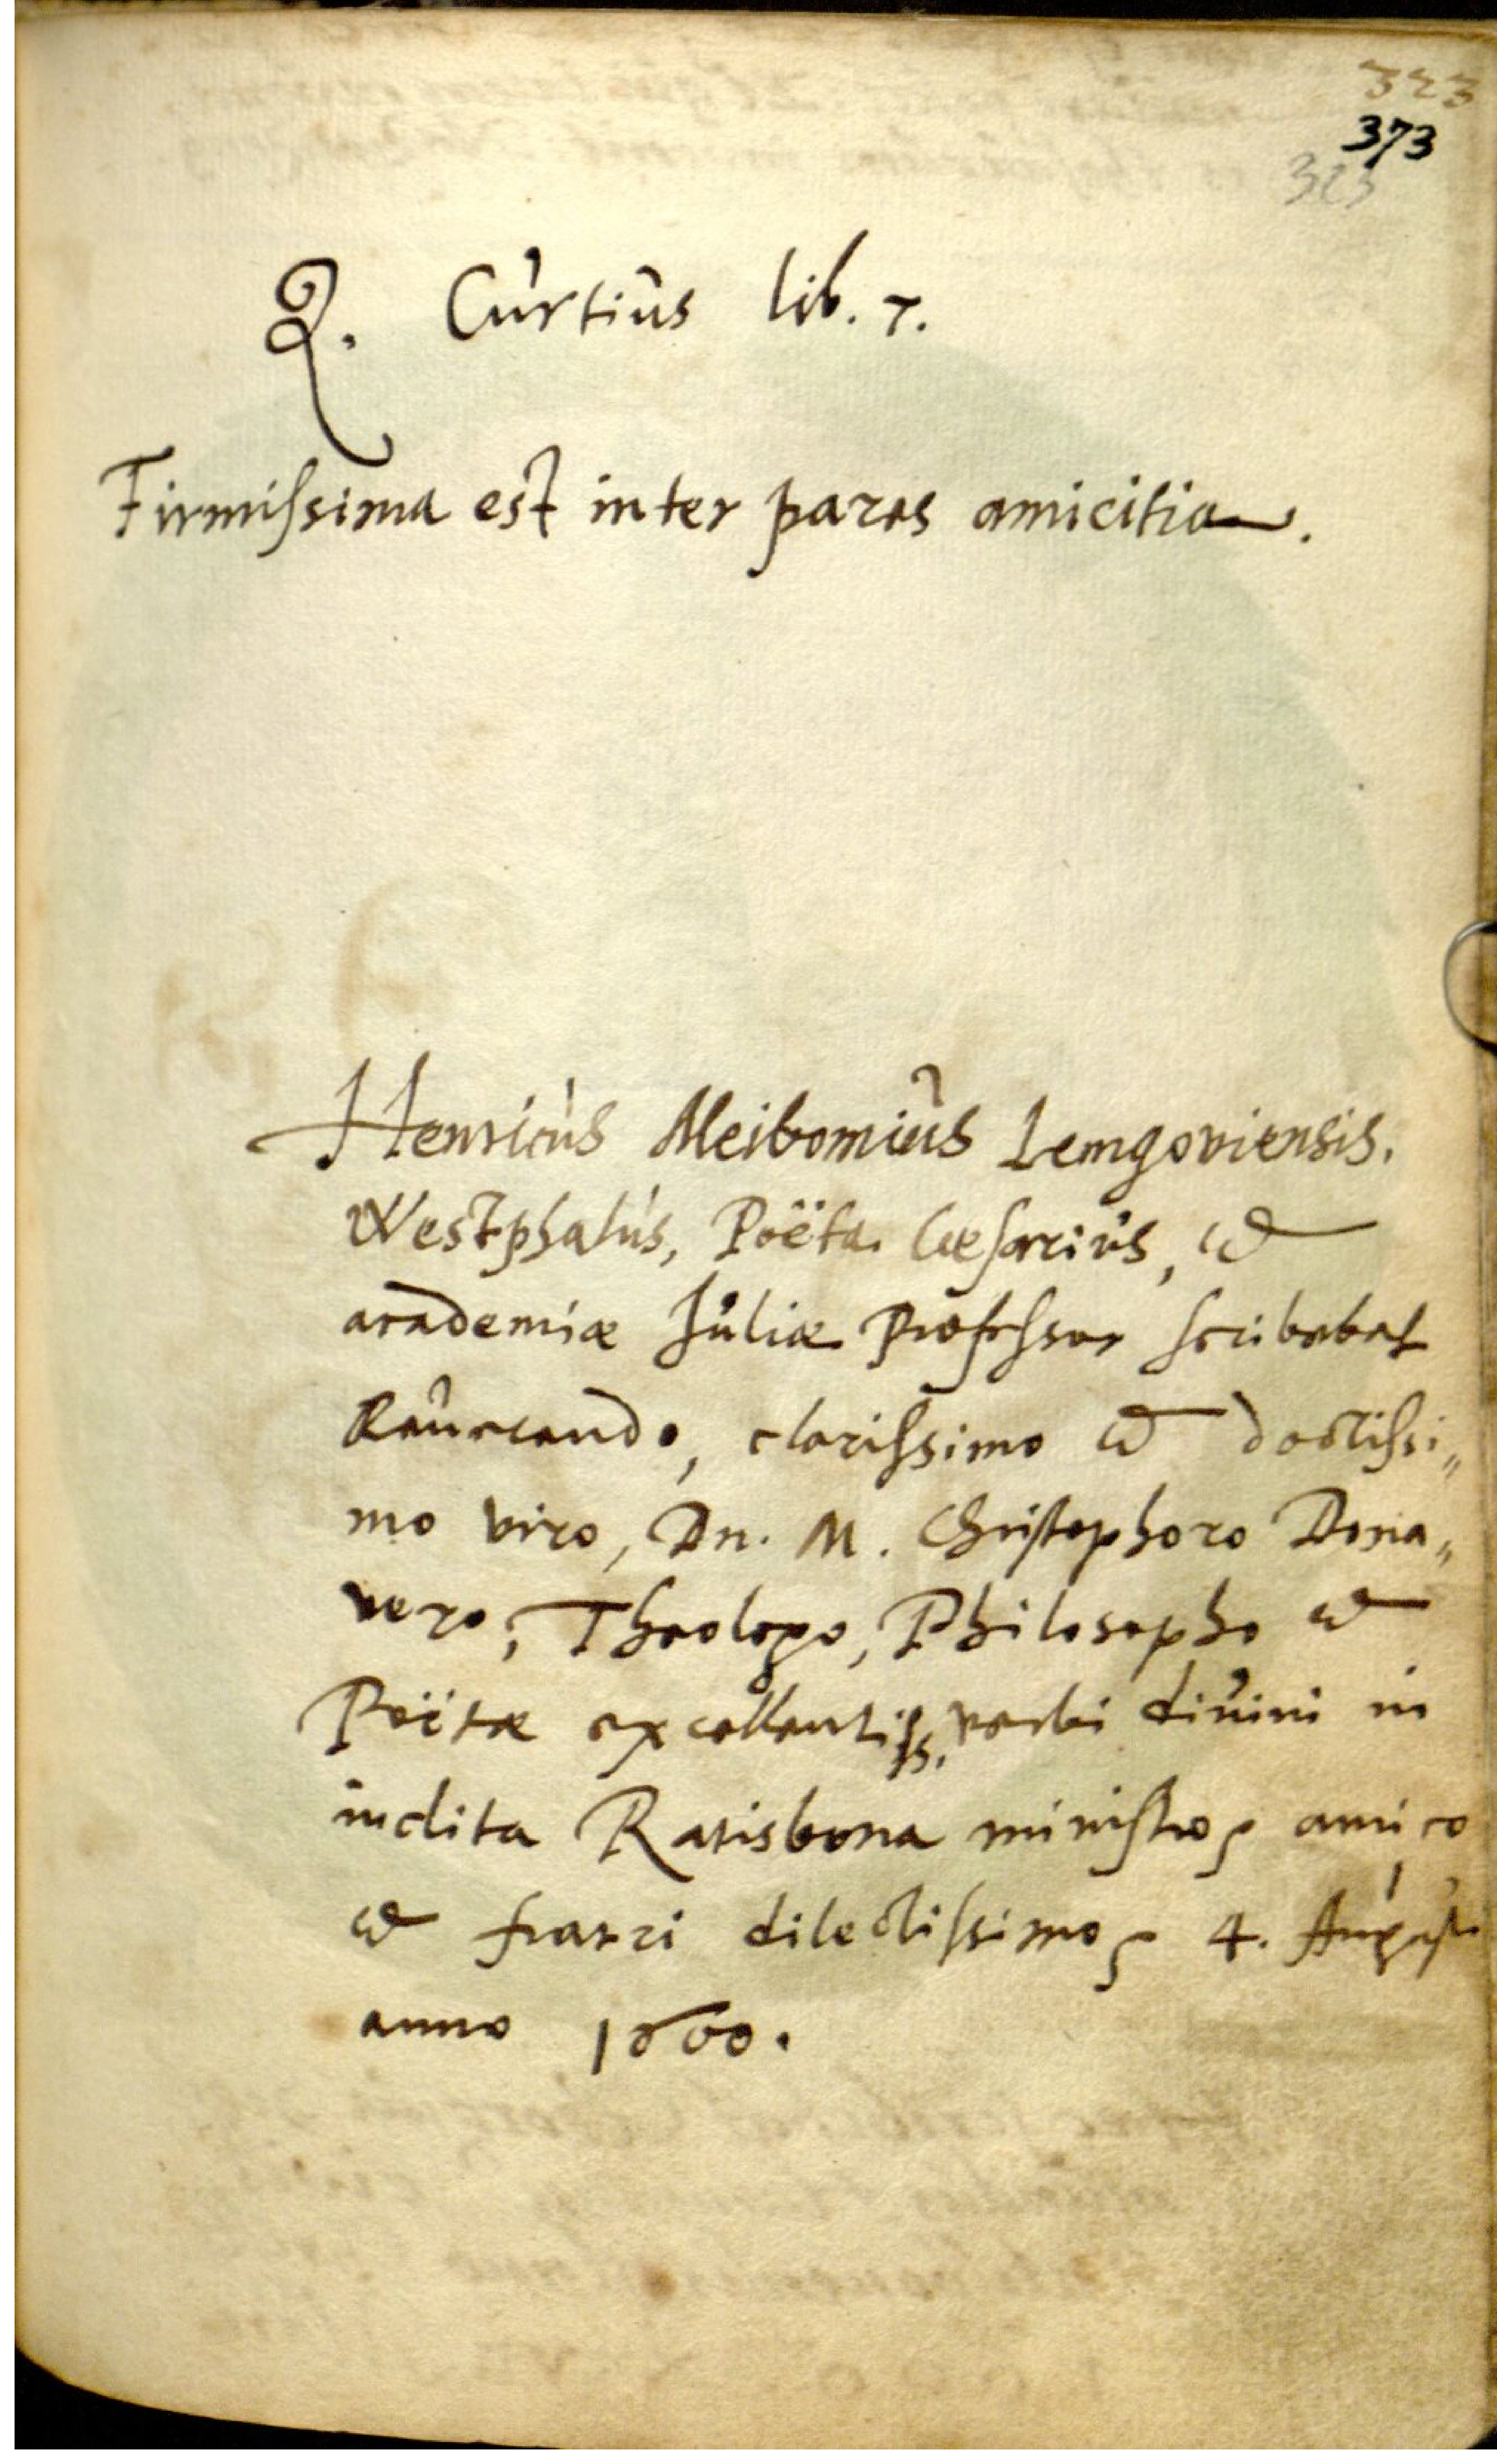 323
373
323
Q. Curtius lib. 7.
Firmissima est inter pares amicitia.
Henricus Meibomius Lemgoviensis.
Westphalus, Poëta Cæsarius, &
academiæ Juliæ Professor scribebat
Reuerendo, clarissimo & doctissi„
mo viro, Dn. M. Christophoro Dona„
uero, Theologo, Philosopho &
Poëtæ excellentiss. verbi diuini in
inclita Ratisbona ministro, amico
& fratri dilectissimo, 4. Augusti
anno 1600.